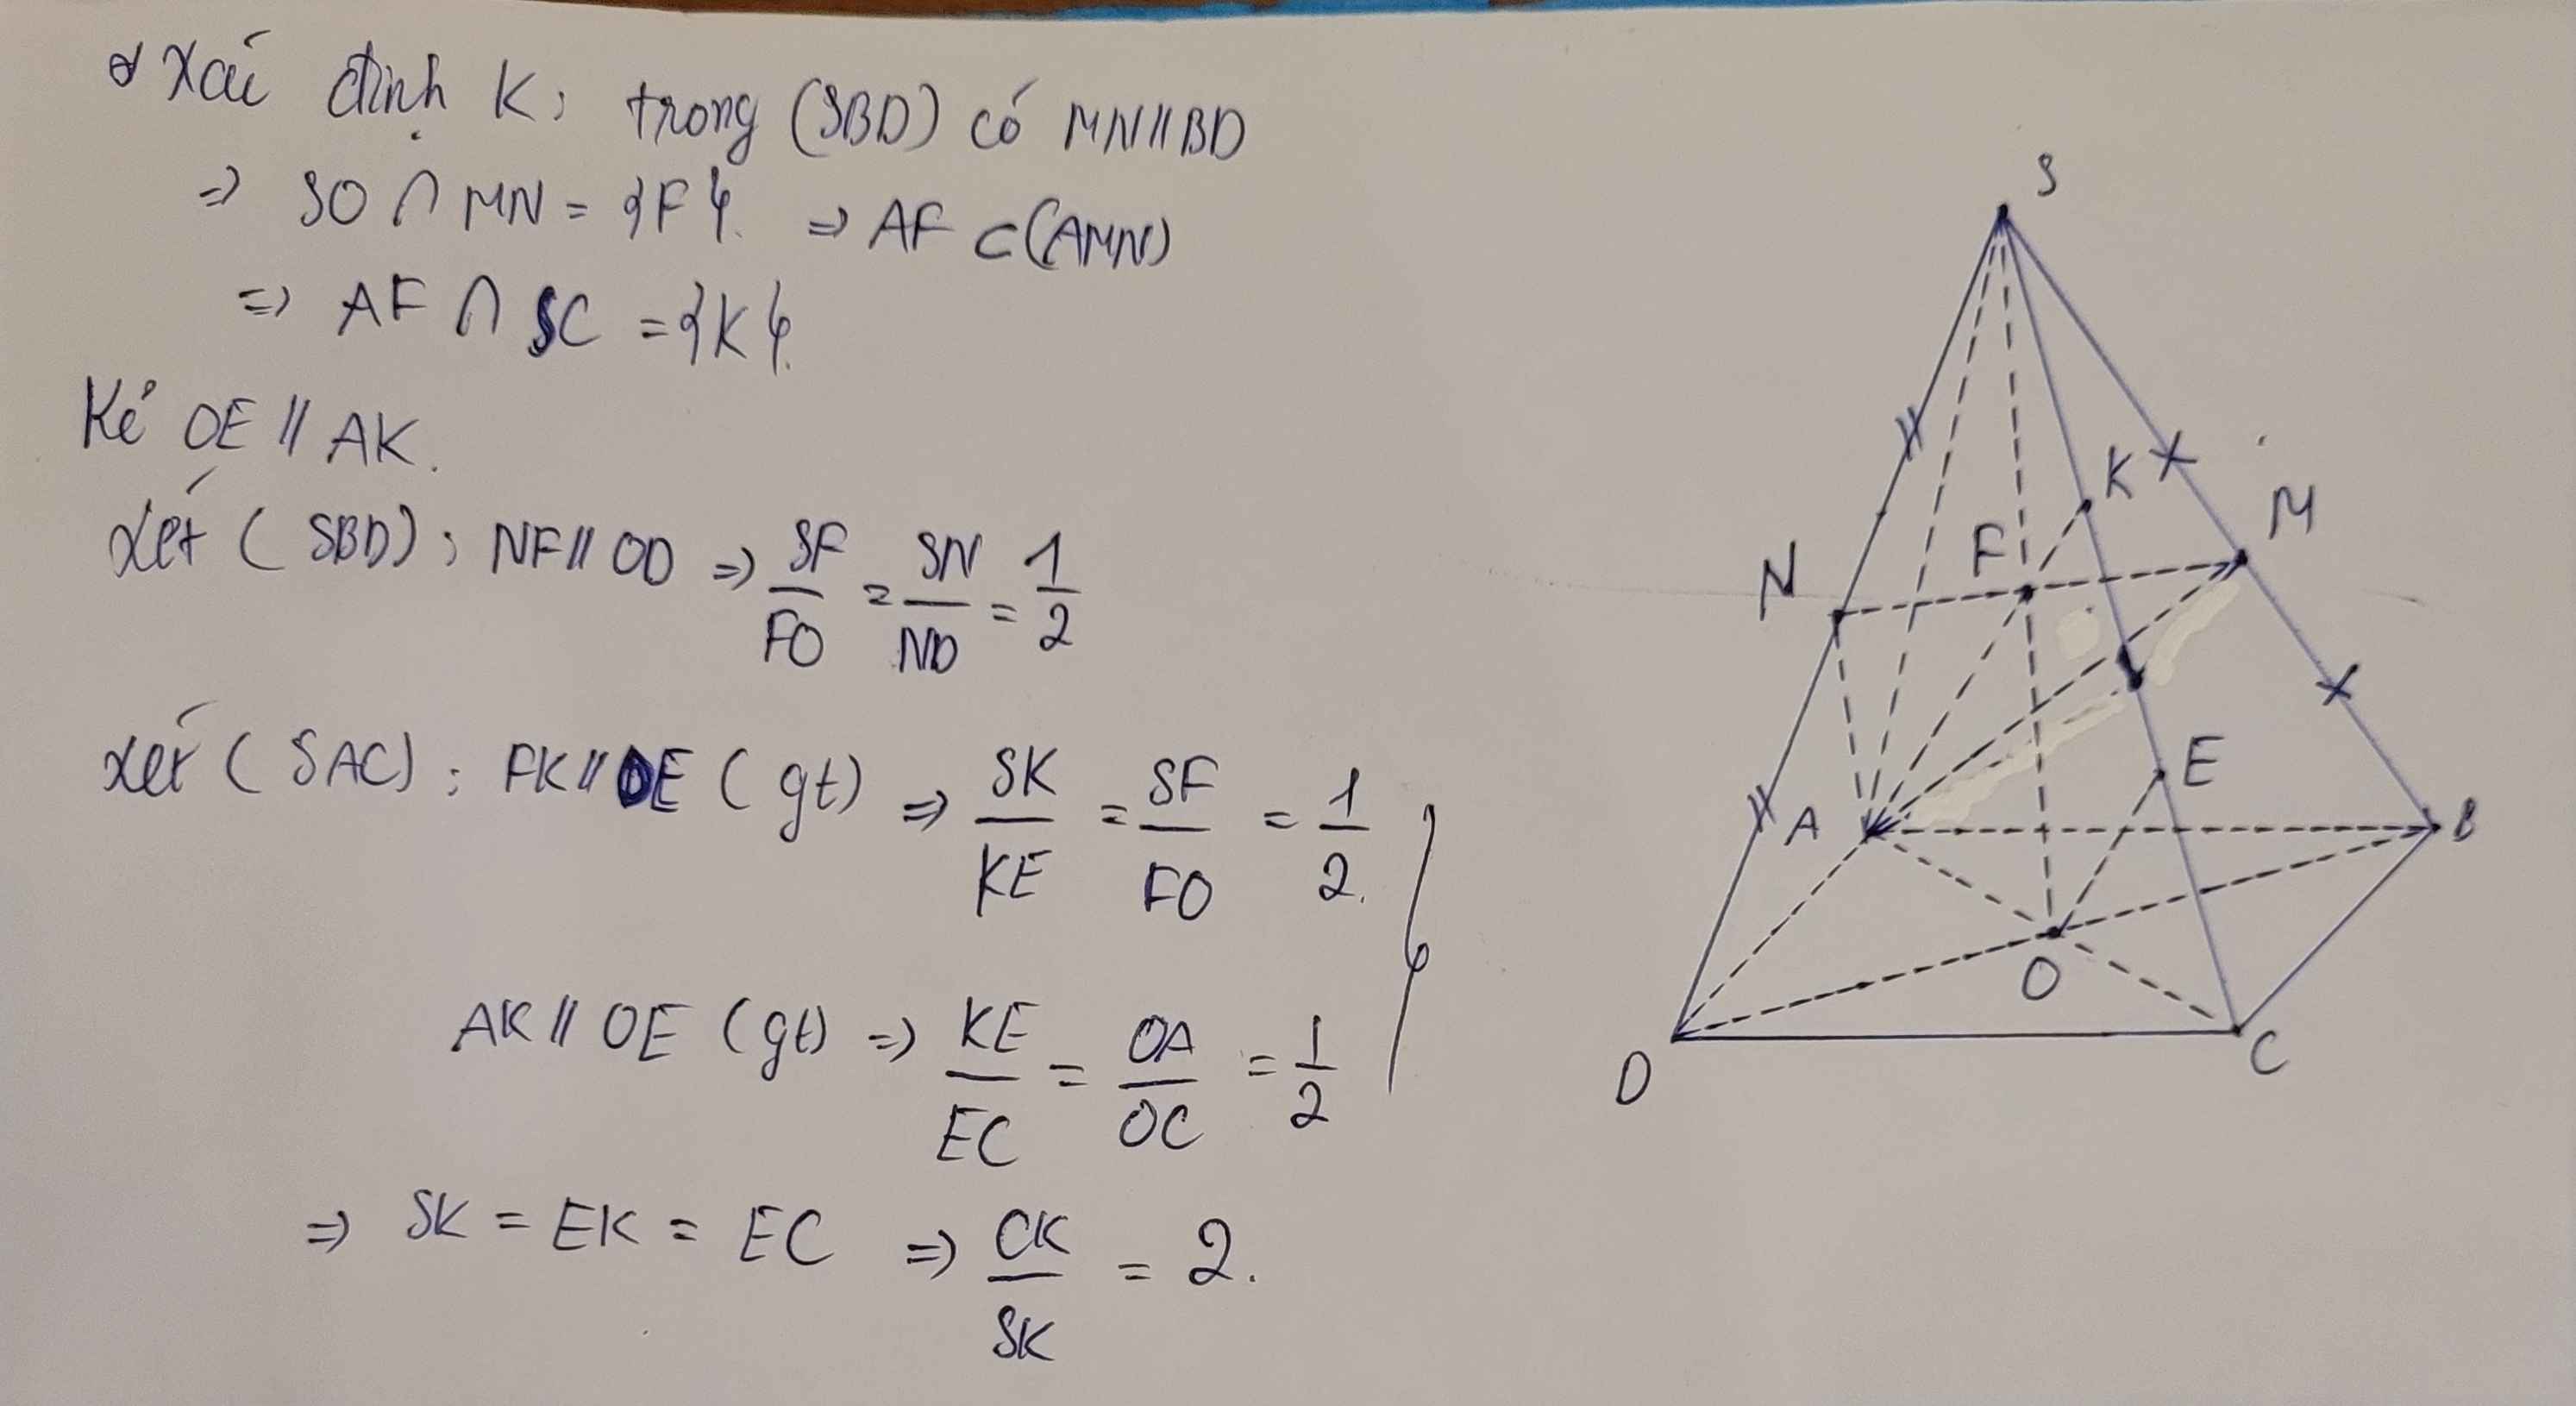 Xác định K: trong (SBD) có MN // BD
⇒ SO ∩ MN = {F}. ⇒ AF ⊂ (AMN)
⇒ AF ∩ SC = {K}.
Kẻ OE // AK.
Xét (SBD): NF // OD ⇒ SF/FO = SN/ND = 1/2
Xét (SAC): FK // OE (gt) ⇒ SK/KE = SF/FO = 1/2.
AK // OE (gt) ⇒ KE/EC = OA/OC = 1/2
⇒ SK = EK = EC ⇒ CK/SK = 2.
S
K
M
N
F
E
A
B
O
D
C